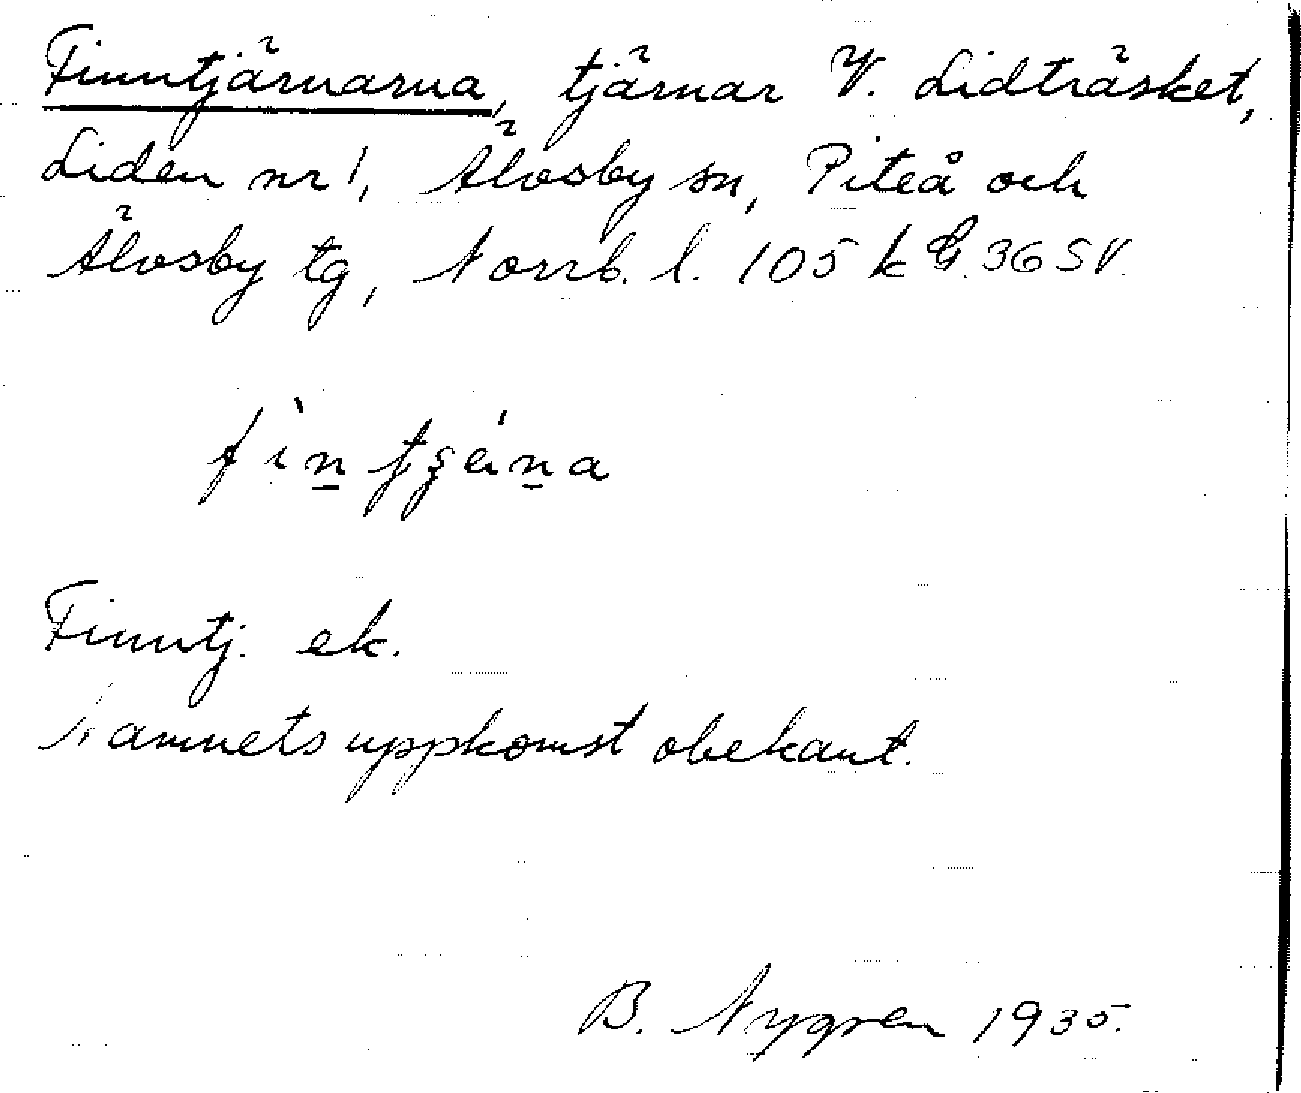 Finntjärnarna, tjärnar V. Lidträsket,
Liden nr 1, Älvsby sn, Piteå och
Älvsby tg, Norrb. l. 105 k G. 36 SV.
Finntj. ek.
Namnets uppkomst obekant.
B. Nygren 1935.